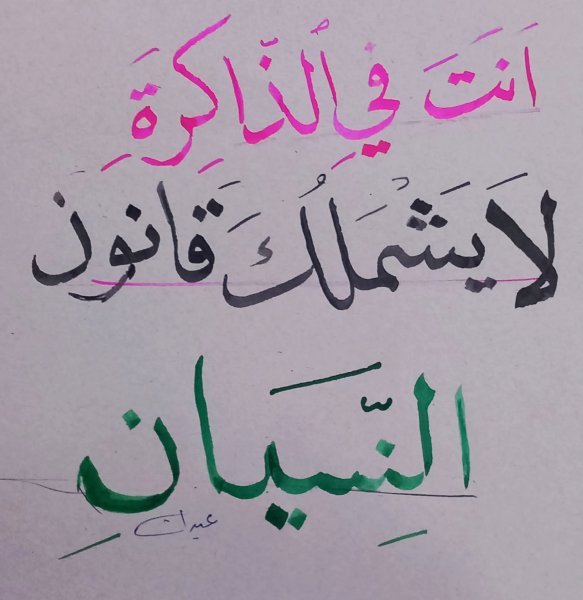 اَنتَ فِي الذّاكِرةَِ
لاَ يَشْمَلُكَ قَانون
النِّسيَانِ